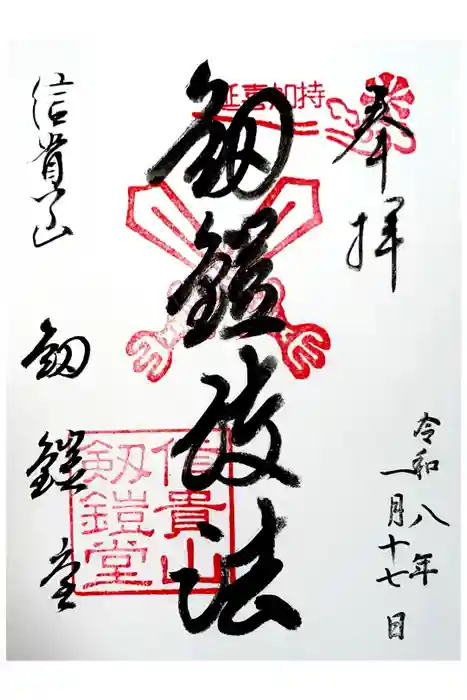 奉拝
延喜加持
釼鎧護法
信貴山 釼鎧堂
信貴山
釼鎧堂
令和八年
一月十七日